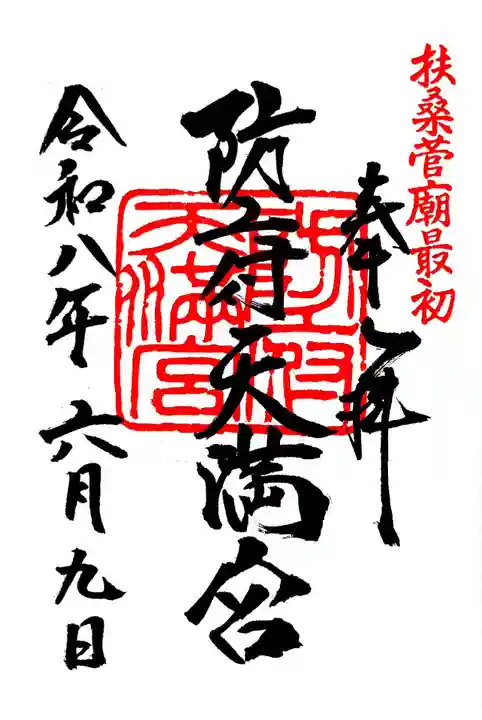 扶桑菅廟最初
奉拝
防府天満宮
防府天満宮
令和八年六月九日